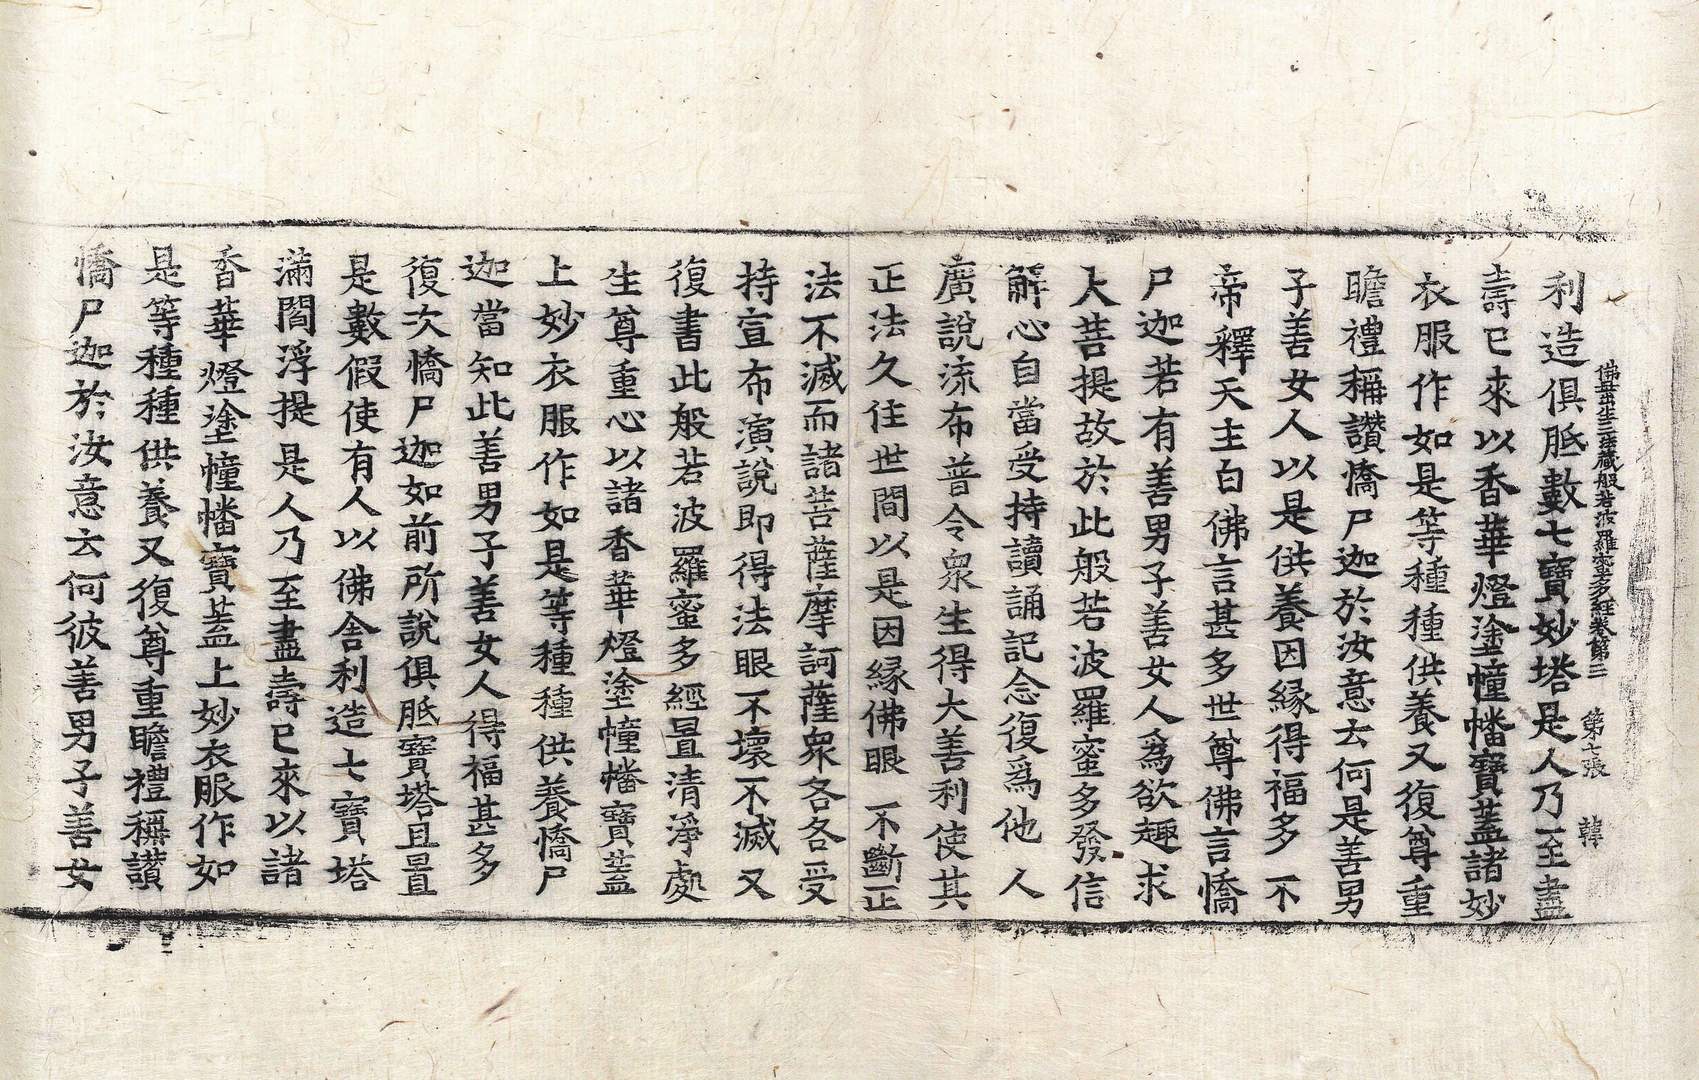 佛母出生三法藏般若波羅蜜多經卷第三　第七張　韓
利造俱胝數七寶妙塔是人乃至盡
壽已來以香華燈塗幢幡寶盖諸妙
衣服作如是等種種供養又復尊重
瞻禮稱讃憍尸迦於汝意云何是善男
子善女人以是供養因緣得福多不
帝釋天主白佛言甚多世尊佛言憍
尸迦若有善男子善女人爲欲趣求
大菩提故於此般若波羅蜜多發信
解心自當受持讀誦記念復爲他人
廣說流布普令衆生得大善利使其
正法久住世間以是因緣佛眼不斷正
法不滅而諸菩薩摩訶薩衆各各受
持宣布演說即得法眼不壞不滅又
復書此般若波羅蜜多經置清淨處
生尊重心以諸香華燈塗幢幡寶盖
上妙衣服作如是等種種供養憍尸
迦當知此善男子善女人得福甚多
復次憍尸迦如前所說俱胝寶塔且置
是數假使有人以佛舍利造七寶塔
滿閻浮提是人乃至盡壽已來以諸
香華燈塗幢幡寶盖上妙衣服作如
是等種種供養又復尊重瞻禮稱讃
憍尸迦於汝意云何彼善男子善女